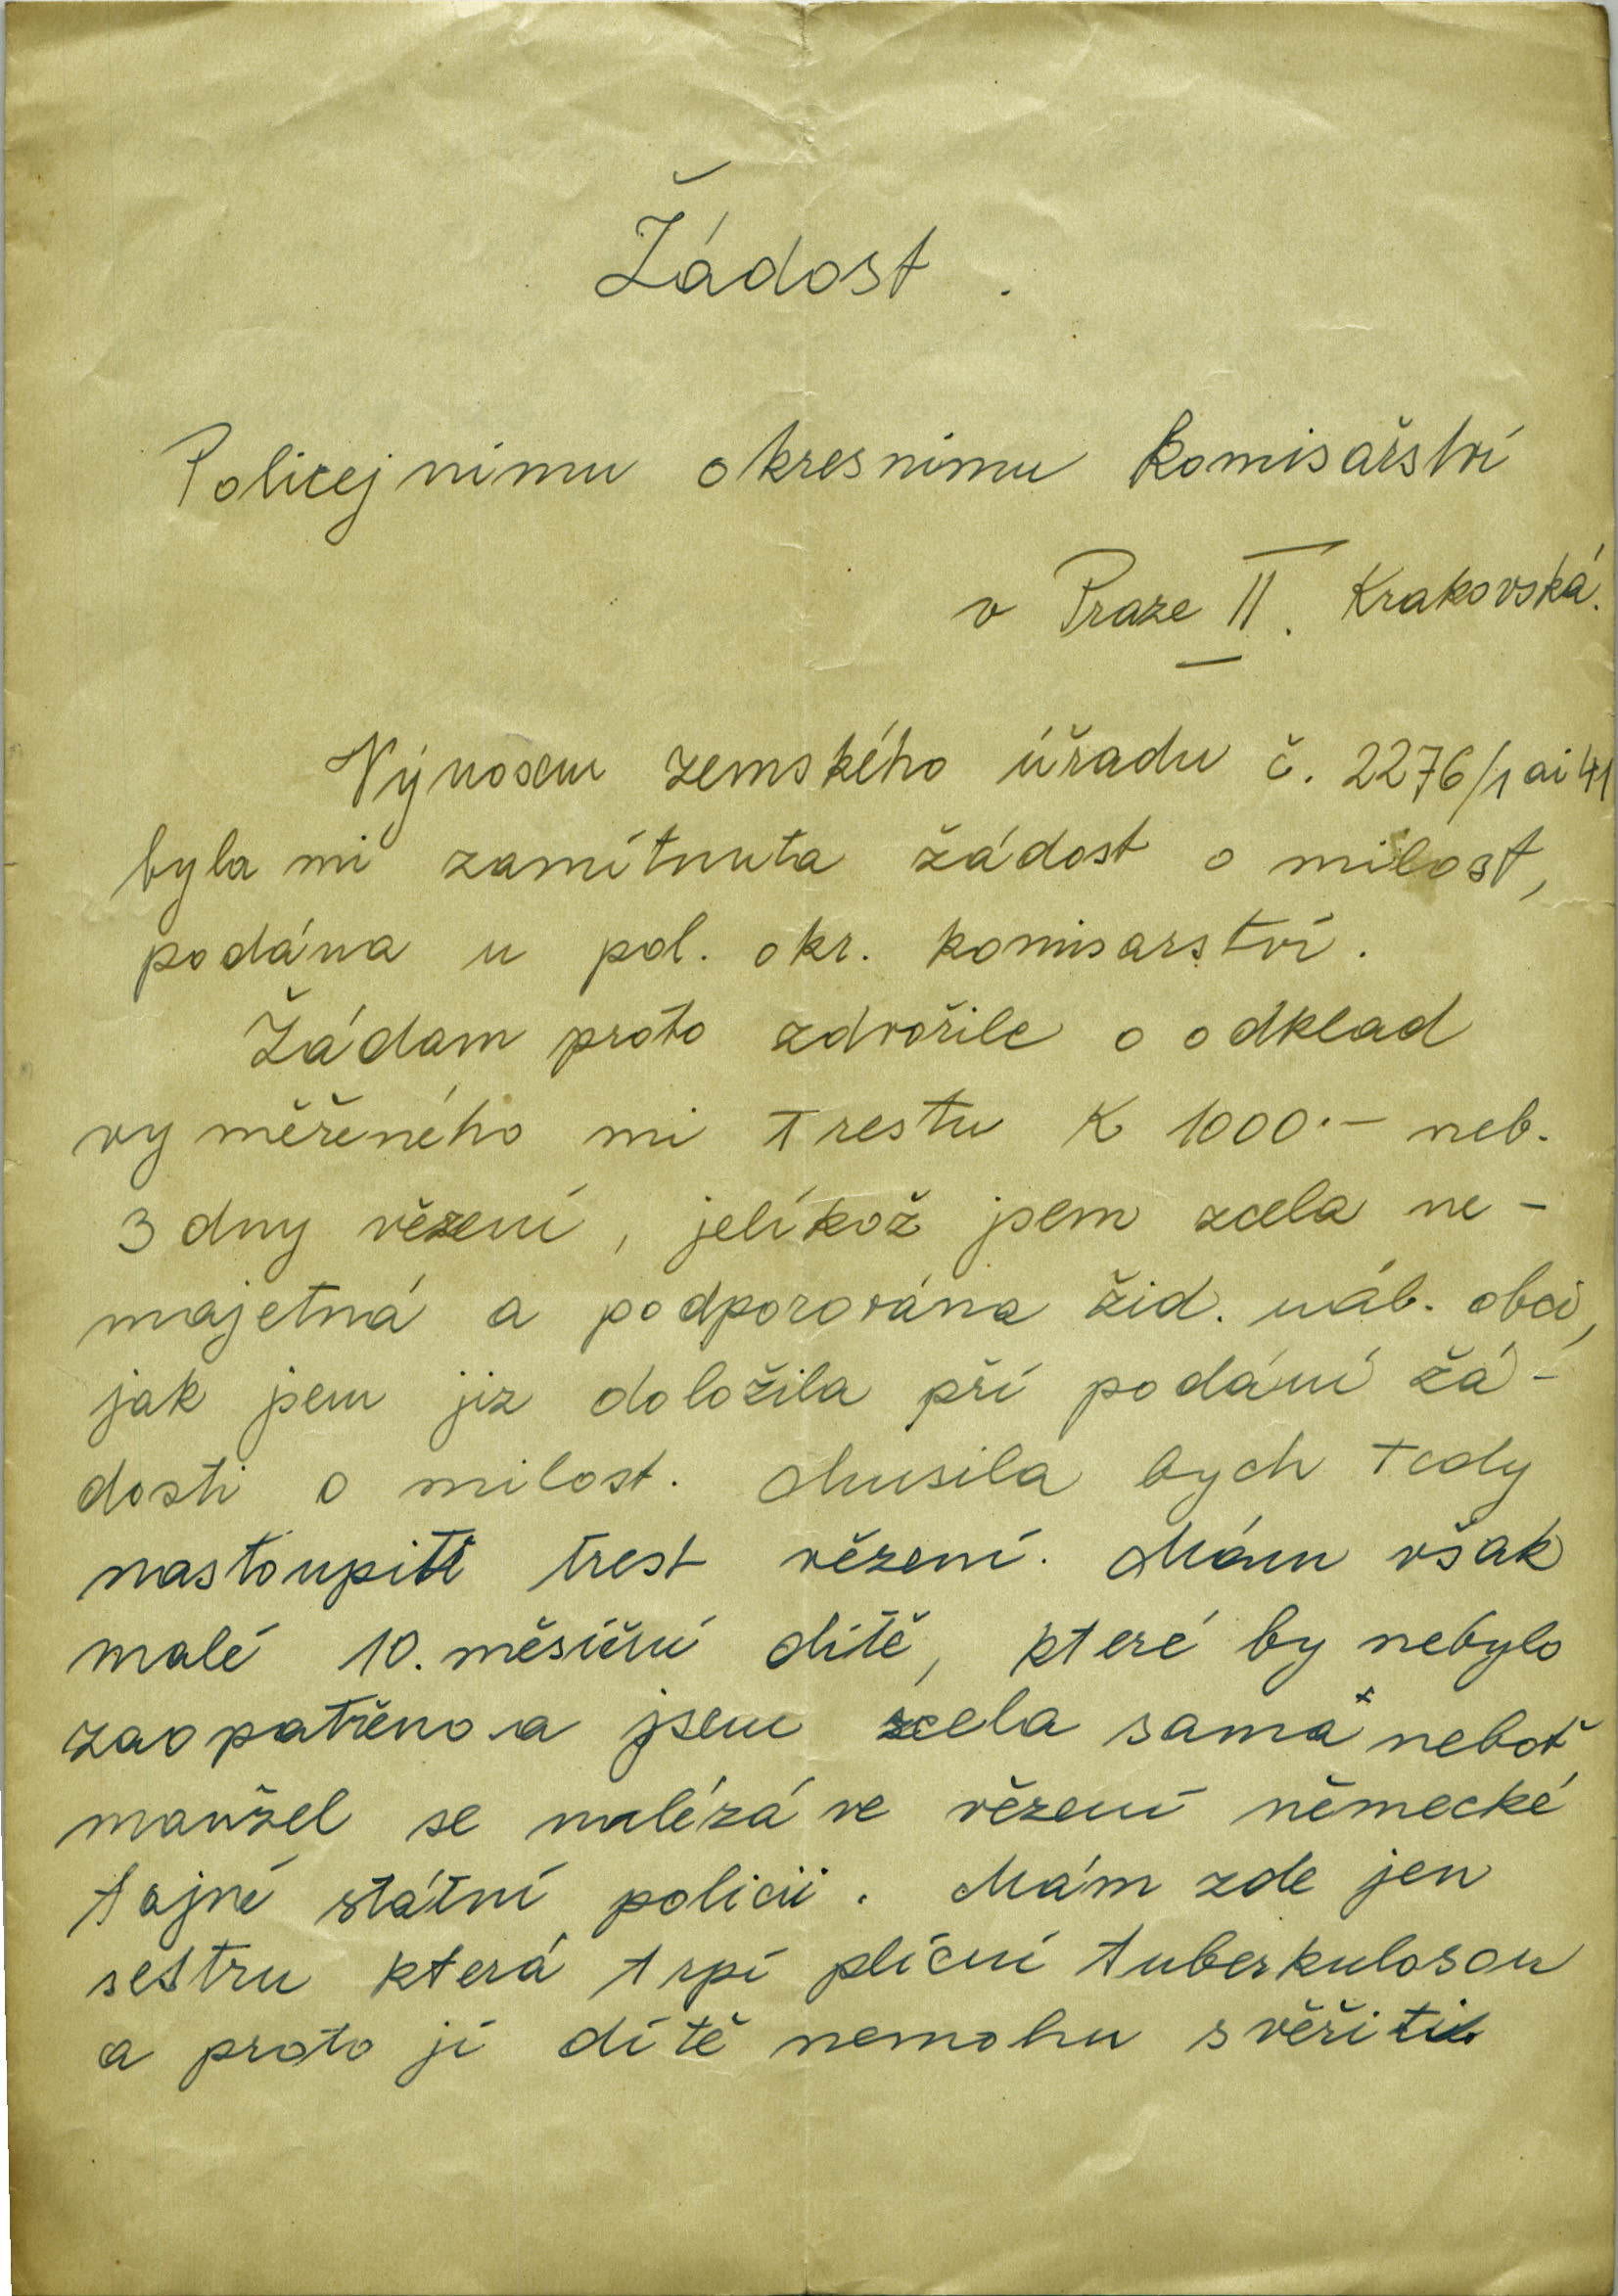 Žádost.
Policejnimu okresnimu komisařství
v Praze II. Krakovská.
Výnosem zemského úřadu č. 2276/1 ai 41
byla mi zamítnuta žádost o milost,
podána u pol. okr. komisarství.
Žádam proto zdvořile o odklad
vyměřeného mi trestu K 1000.- neb.
3 dny vězení, jelíkož jsem zcela ne-
majetná a podporována žid. náb. obcí,
jak jsem jiz doložila pří podání žá-
dosti o milost. Musila bych tedy
nastoupiti trest vězení. Mám však
malé 10. měsíční dítě, které by nebylo
zaopatřeno a jsem zcela sama neboť
manžel se nalézá ve vězení německé
tajné státní policii. Mám zde jen
sestru která trpí plícní tuberkulosou
a proto jí dítě nemohu svěřiti